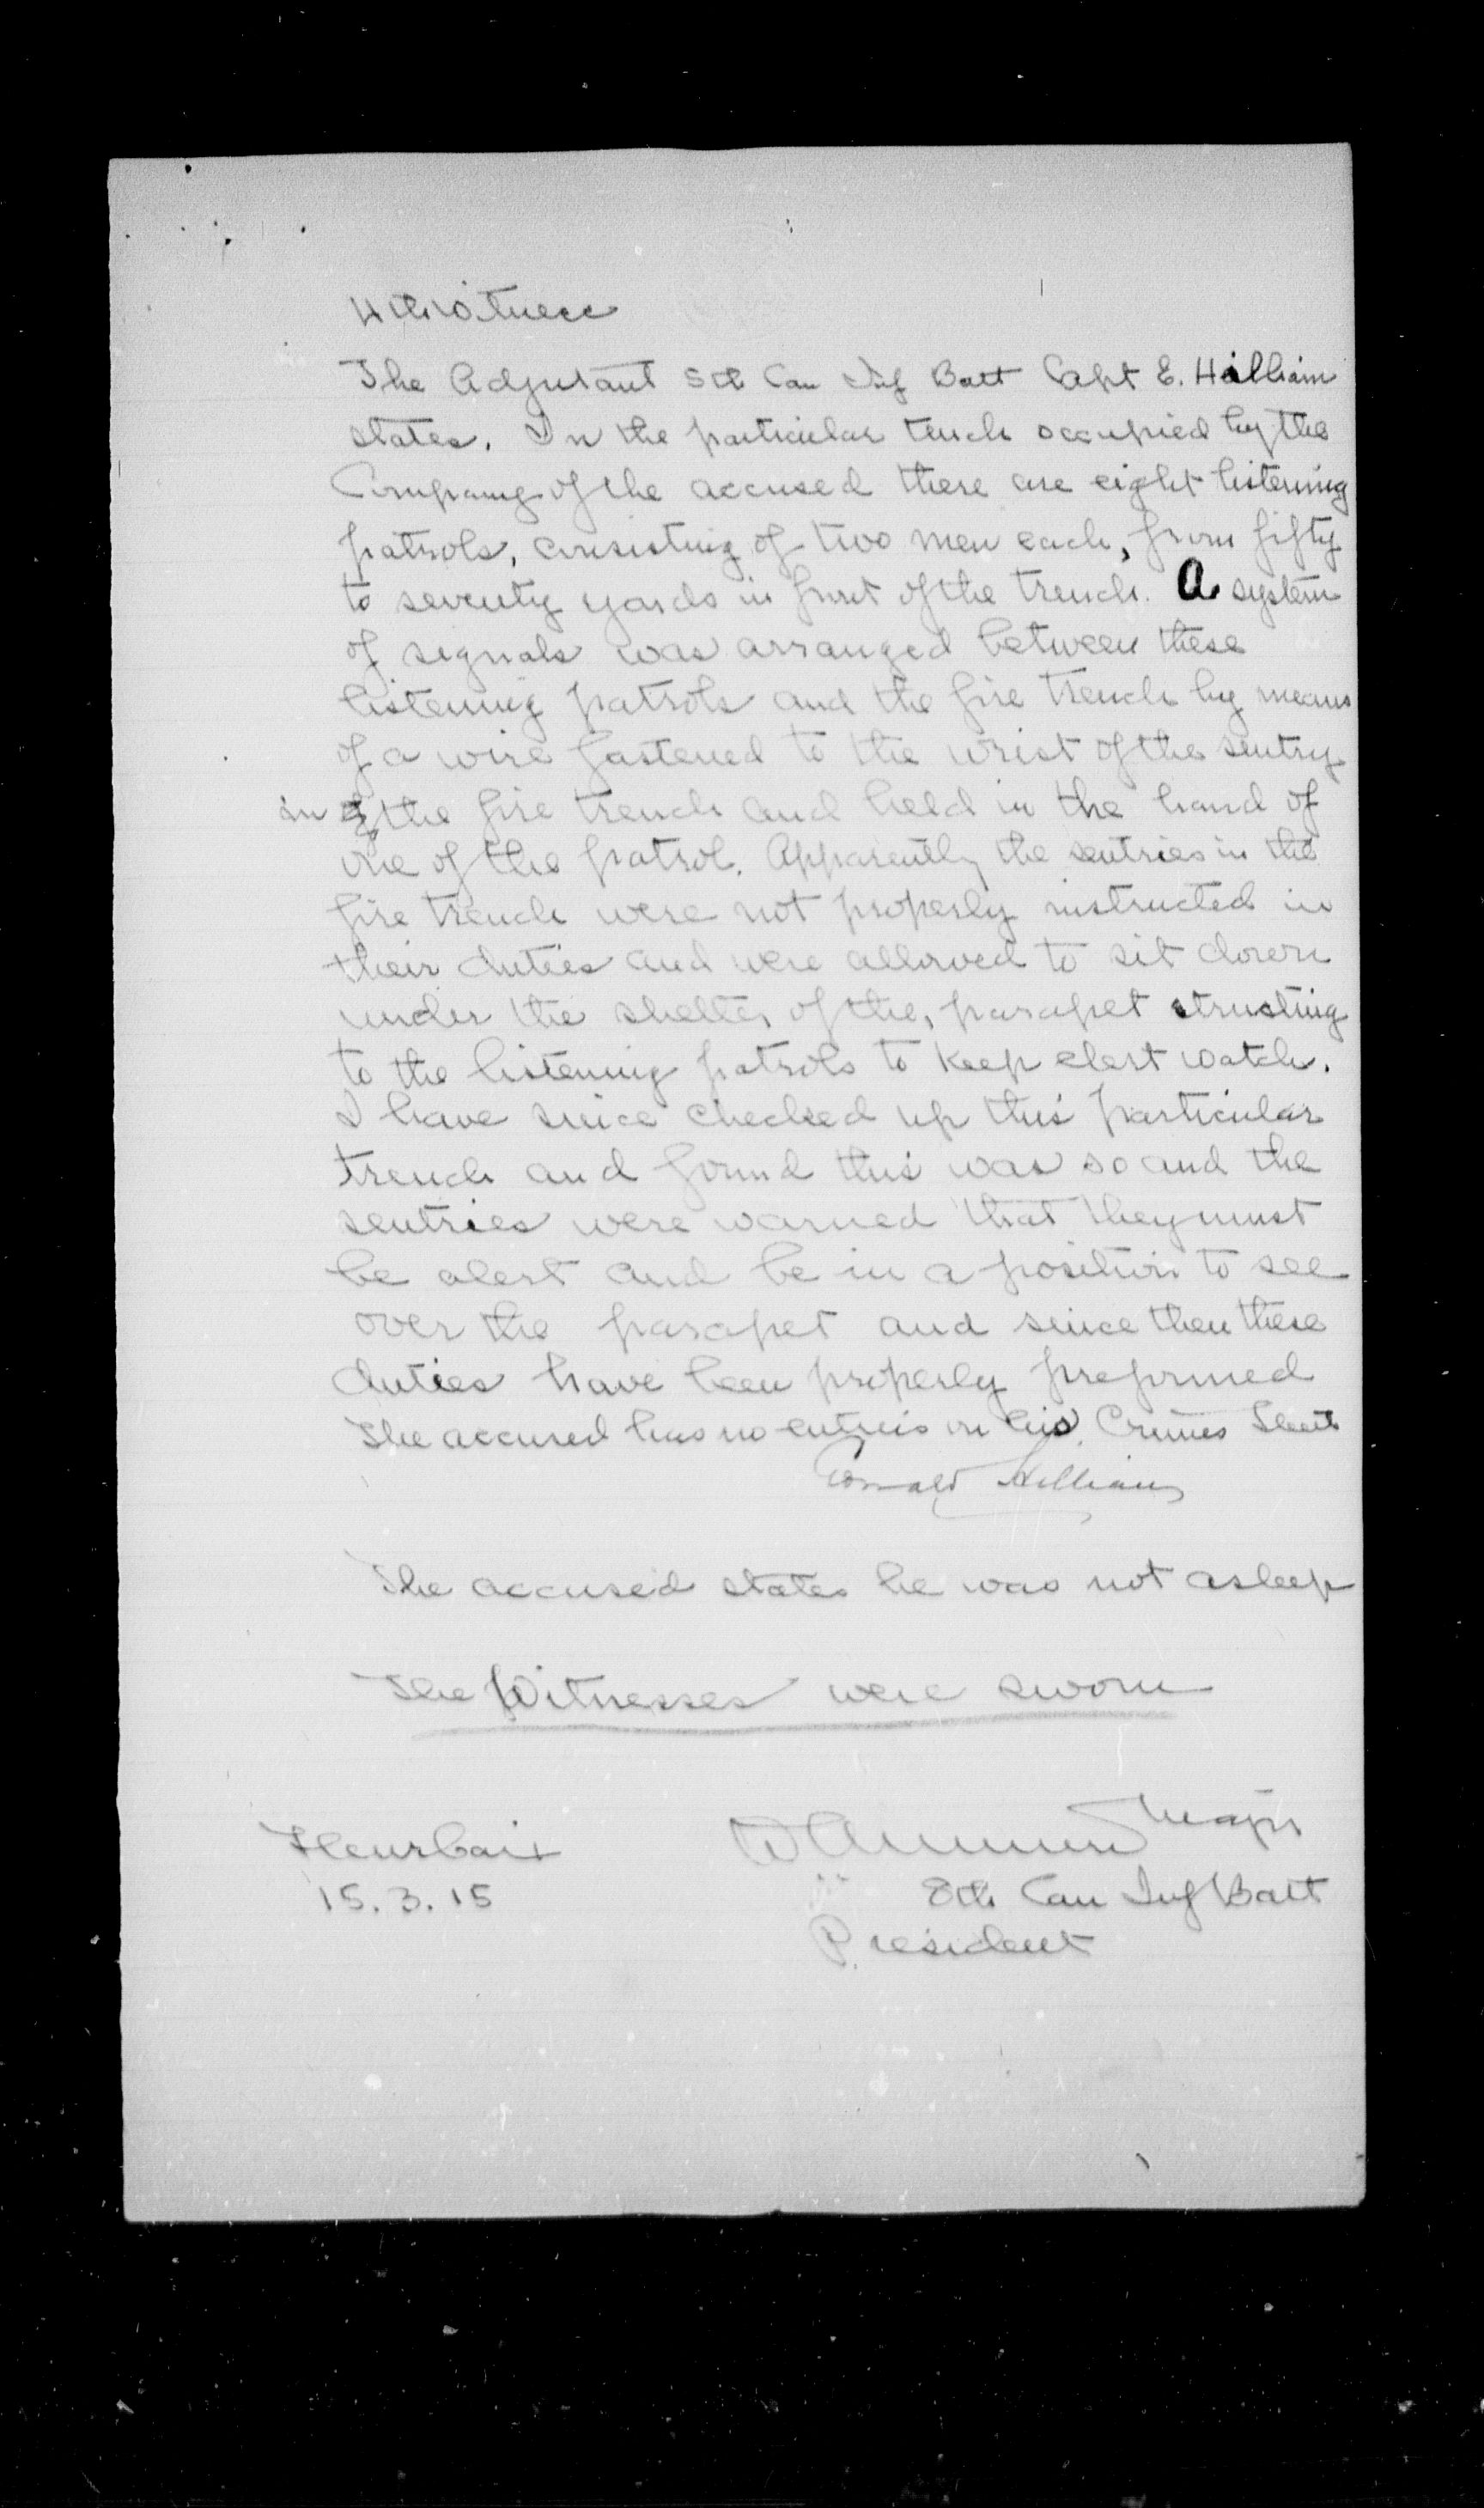 4th Witness
The Adjutant 5th Can Inf Batt Capt E. Hilliam
states. In the particular tench occupied by the
Company of the accused there are eight listening
patrols, consisting of two men each, from fifty
to seventy yards in front of the trench. A system
of signals was arranged between these
listening patrols and the fire trench by means
of a wire fastened to the wrist of the sentry
in the fire trench and held in the hand of
one of the patrol. Apparently the sentries in the
fire trench were not properly instructed in
their duties and were allowed to sit down
under the shelter of the, parapet trusting
to the listening patrols to keep alert watch.
I have since checked up this particular
trench and found this was so and the
sentries were warned that they must
be alert and be in a position to see
over the parapet and since then these
duties have been properly preformed
The accused has no entries on his Crimes Sheet
Edward Hilliam
The accused states he was not asleep
The Witnesses were sworn
Fleurbaix
15.3.15
Major
8th Can Inf Batt
President